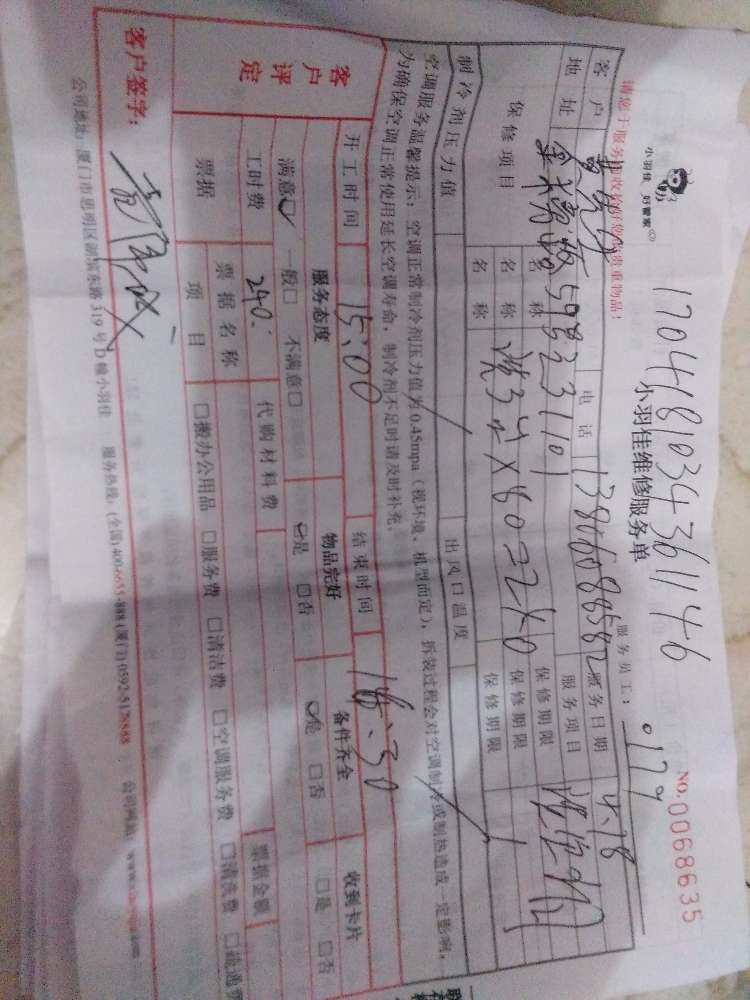 小羽佳 好管家
1704181034361146
NO.0068635
小羽佳维修服务单
服务员工：0179
请您于服务 收拾好您的贵重物品！
客户 电话 13806088582 服务日期 4.18
地址 59823 1101 服务项目
保修项目 名称 保修期限
名称 洗3台×80=240 保修期限
名称 保修期限
制冷剂压力值 出风口温度
空调服务温馨提示：空调正常制冷剂压力值为0.45mpa（视环境、机型而定），拆装过程会对空调制冷或制热造成一定影响，
为确保空调正常使用延长空调寿命，制冷剂不足时请及时补充。
开工时间 15:00 结束时间 18:30
客户评定 服务态度 物品完好 备件齐全 收到卡片
满意☑ 一般□ 不满意□ ☑是 □否 ☑是 □否 □是 □否
工时费 240. 代购材料费
票据 票据名称 票据金额
项目 □搬办公用品 □服务费 □清洁费 □空调服务费 □清洗费 □疏通费
客户签字：
公司地址：厦门市思明区湖滨东路319号D幢小羽佳 服务热线：(全国)400-6655-888 (厦门)0592-5128888 公司网站：